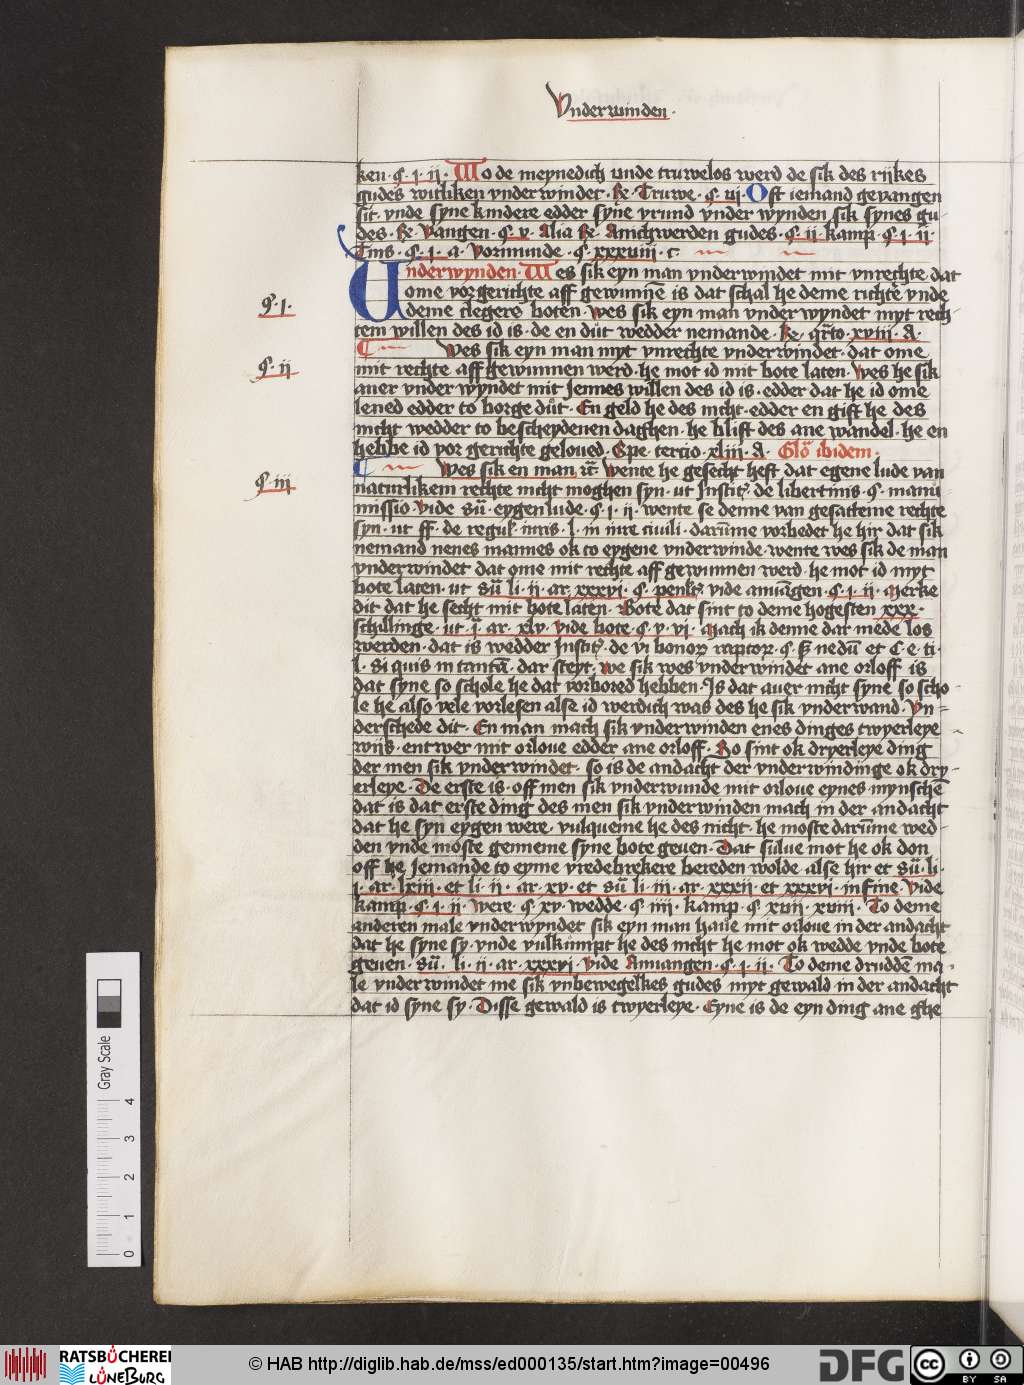 Vnderwinden.
ken. §. j. ij. Wo de meynedich vnde truwelos werd de sik des rijkes
gudes witliken vnderwindet. Re. Truwe. §. vij Oft iemand gevangen
sit. vnde syne kindere edder syne vrund vnder wynden sik synes gu-
des. Re. Vangen. §. v. Alia Re. Anichwerden gudes. §. ij kamp. §. j. ij.
Tins. §. j. a. Vormunde. §. xxxviij. c.
Underwynden. Wes sik eyn man vnderwindet mit vnrechte. dat
ome vor gerichte aff gewunnē is dat schal he deme richte vnde
§. j.
deme clegere boten. Wes sik eyn man vnder wyndet myt rech-
tem willen des id is. de en dut wedder nemande. Re. qrto. xviij. A.
Wes sik eyn man myt vnrechte vnderwindet. dat ome
§. ij
mit rechte aff gewunnen werd. he mot id mit bote laten. Wes he sik
auer vnder wyndet mit Jennes willen des id is. edder dat he id ome
lened edder to borge dut. En geld he des nicht. edder en gift he des
nicht wedder to bescheydenen daghen. he blift des ane wandel. he en
hebbe id vor gerichte geloued. Spe. tercio. xliij. A. Glo ibidem.
§. iij
Wes sik en man rc. Wente he gesecht heft dat egene lude van
naturlikem rechte nicht moghen syn. ut Instit. de libertinis. §. manu
missio. Vide su. eygen lude. §. j. ij. wente se denne van gesatteme rechte
syn. ut ff. de regul. iuris. l. in iure ciuili. darumme vorbedet he hir dat sik
nemand nenes mannes ok to eygene vnderwinde. wente wes sik de man
vnderwindet dat ome mit rechte aff gewunnen werd. he mot id myt
bote laten. ut su. li. ij. ar. xxxvj. §. penlt. vide anuangen. §. j. ij. Merke
dit dat he secht mit bote laten. Bote dat sint to deme hogesten xxx.
schillinge. ut. j. ar. xlv. vide bote. §. v. vj. Mach ik denne dat mede los
werden. dat is wedder Instit. de vi bonor raptor. §. nedu et C. e. ti.
l. si quis in tantā. dar steyt. we sik wes vnderwindet ane orloff is
dat syne so schole he dat vorbored hebben. Is dat auer nicht syne so scho-
le he also vele vorlesen alse id werdich was des he sik vnderwand. Vn-
derschede dit. En man mach sik vnderwinden enes dinges twyerleye
wijs. entwer mit orloue edder ane orloff. So sint ok dryerleye ding
der men sik vnderwindet. so is de andacht der vnderwindinge ok dry-
erleye. De erste is. off men sik vnderwunde mit orloue eynes mynschē
dat is dat erste ding des men sik vnderwinden mach in der andacht
dat he syn eygen were. vulqueme he des nicht. he moste darumme wed-
den vnde moste genneme syne bote geuen. Dat sulue mot he ok don
off he Jemande to eyme vredebrekere bereden wolde. alse hir et su. li.
j. ar. lxiij. et li. ij. ar. xv. et su. li. iij. ar. xxxij et xxxvj. in fine. Vide
kamp. §. j. ij. Were. §. xv. wedde. §. iiij. kamp. §. xvij. xviij. To deme
anderen male vnderwyndet sik eyn man haue mit orloue in der andacht
dat he syne sy. vnde vulkumpt he des nicht he mot ok wedde vnde bote
geuen. su. li. ij. ar. xxxvj. Vide Anuangen. §. j. ij. To deme druddē ma-
le vnderwindet me sik vnbewegelkes gudes myt gewald in der andacht
dat id syne sy. Disse gewald is twyerleye. Eyne is de eyn ding ane ghe
Gray Scale
0 1 2 3 4
RATSBÜCHEREI
LÜNEBURG
© HAB http://diglib.hab.de/mss/ed000135/start.htm?image=00496
DFG
cc BY SA